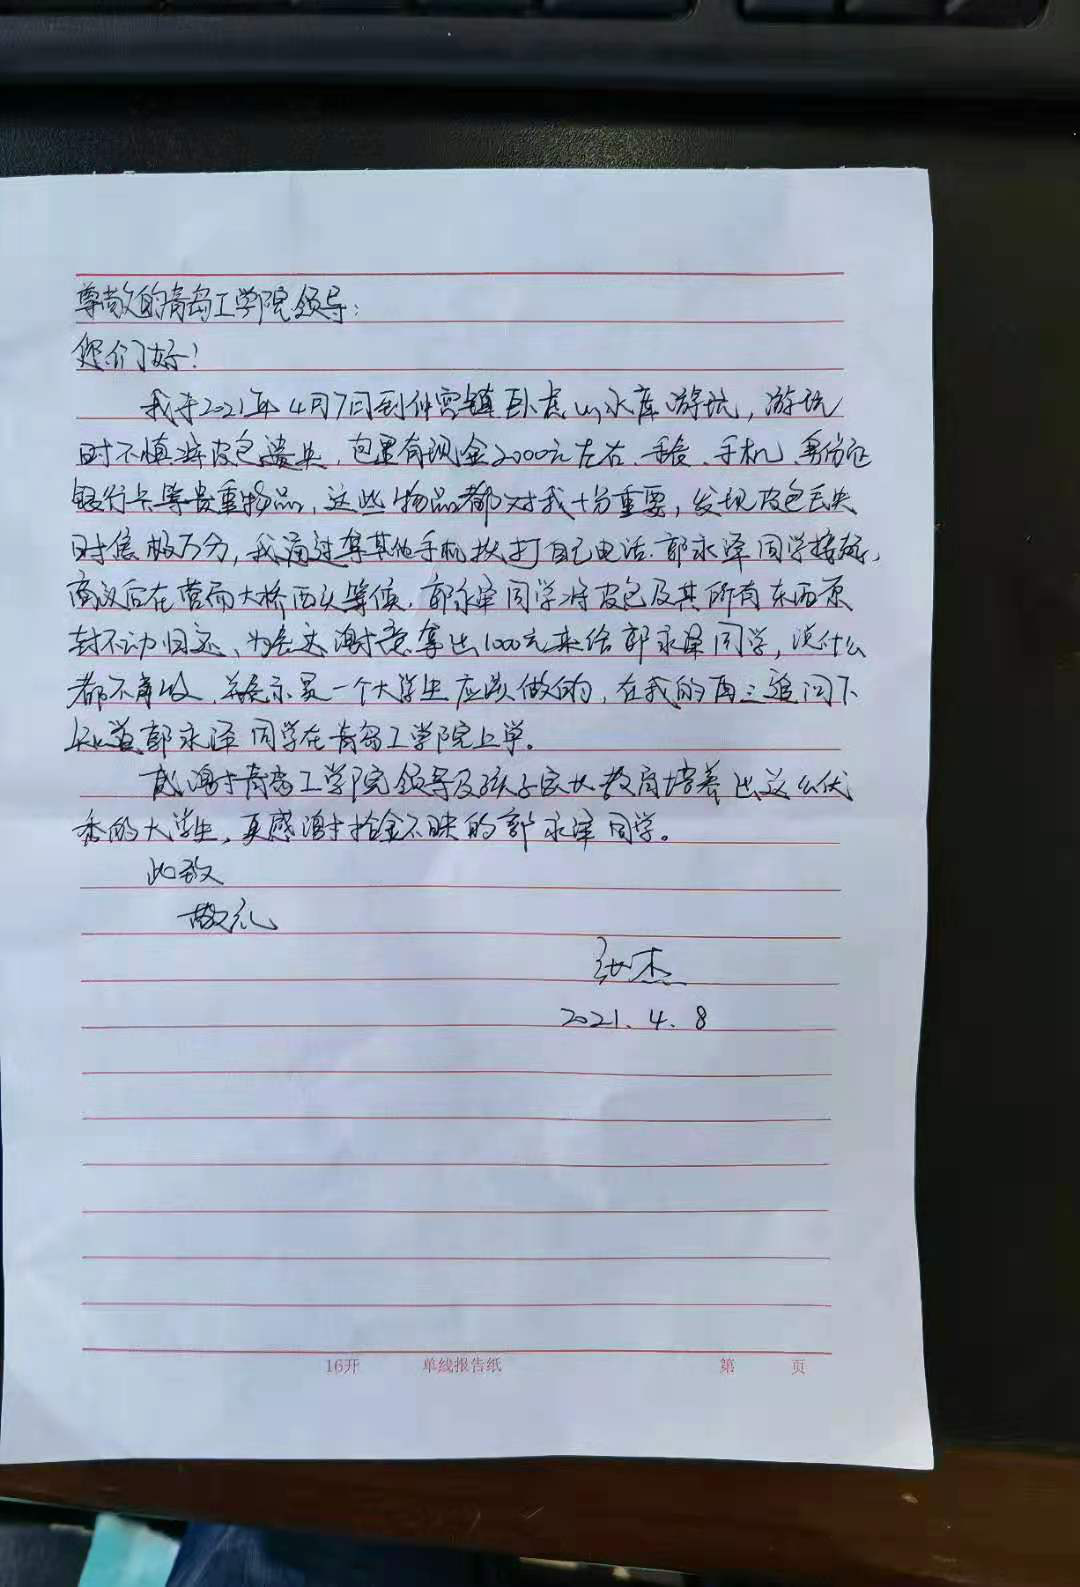 尊敬的青岛工学院领导:
您们好!
我于2021年4月7日到仲宫镇卧虎山水库游玩,游玩
时不慎将皮包遗失,包里有现金2000元左右、手机、身份证
银行卡等贵重物品,这些物品都对我十分重要,发现皮包丢失
时焦极万分,我通过拿其他手机拨打自己电话.郭永泽同学接听,
商议后在营而大桥西头等候.郭永泽同学将皮包及其所有东西原
封不动归还、为表达谢意拿出1000元来给郭永泽同学,说什么
都不肯收,并表示是一个大学生应该做的,在我的再三追问下
知道郭永泽同学在青岛工学院上学。
感谢青岛工学院领导及孩子家长教育培养出这么优
秀的大学生,更感谢拾金不昧的郭永泽同学。
此致
敬礼
张杰
2021.4.8
16开 单线报告纸 第 页